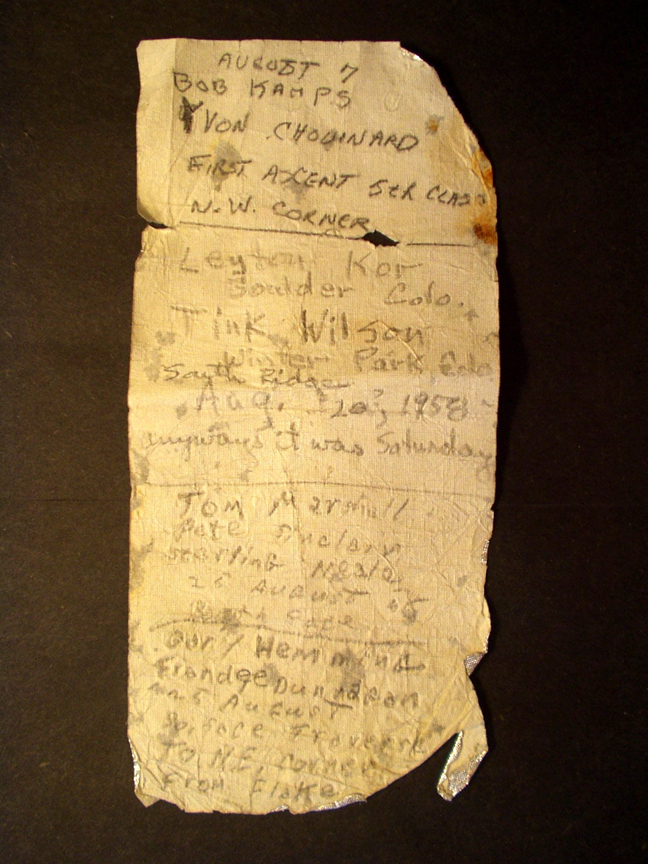 AUGUST 7
BOB KAMPS
YVON CHOUINARD
FIRST ASCENT 5th CLASS
N.W. CORNER
Leyton Kor
Boulder Colo.
Tink Wilson
Winter Park, Colo
South Ridge
Aug. 1958
anyways it was Saturday
Tom Marshall
Pete Sinclair
Sterling Neale
25 August 58
Gary Hemming
August
Traverse
To N.E. Corner
From Flake